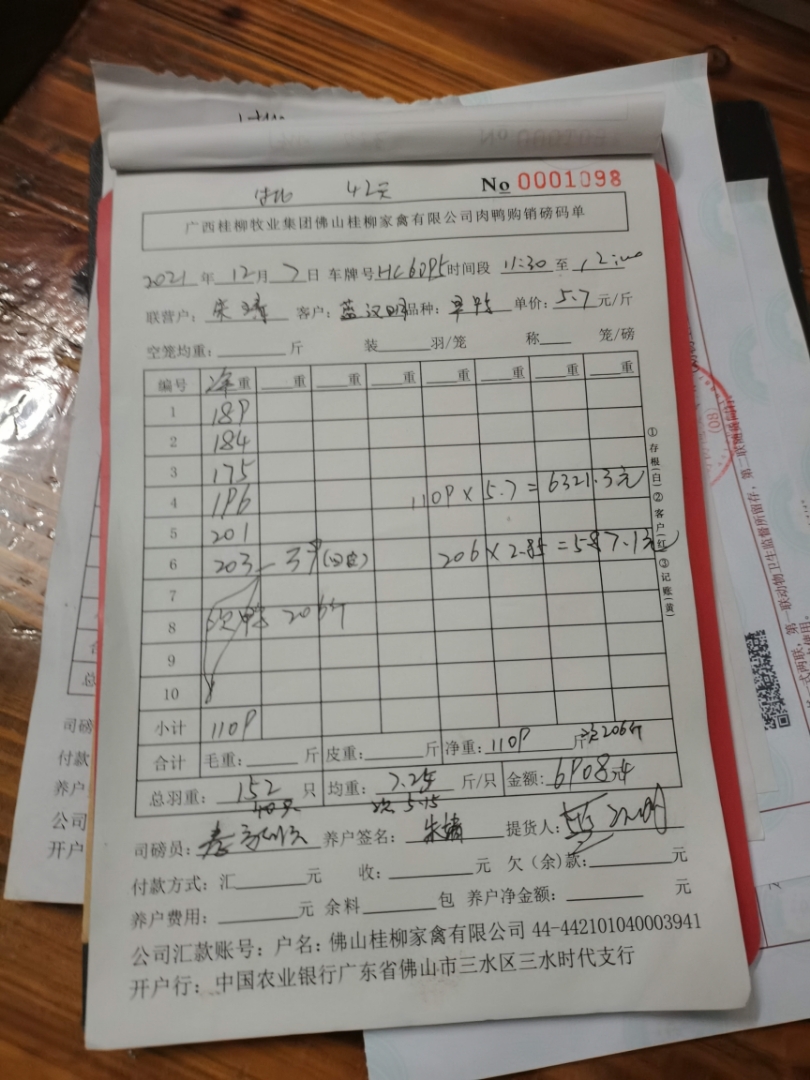 42天 No 0001098
广西桂柳牧业集团佛山桂柳家禽有限公司肉鸭购销磅码单
2021 年 12 月 7 日 车牌号 HC6D95 时间段 11:30 至 12:00
联营户: 客户: 蓝汉明 品种: 单价: 5.7 元/斤
空笼均重: 斤 装 羽/笼 称 笼/磅
编号 净重 重 重 重 重 重 重 重
1 189
2 184
3 175
4 196 1109 × 5.7 = 6321.3元
5 201
6 203 - 39 206 × 2.85 = 587.1元
7
8 次鸭 206斤
9
10
小计 1109
合计 毛重: 斤 皮重: 斤 净重: 1109 斤 次206斤
总羽重: 152 只 均重: 7.25 斤/只 金额: 6908元
40只 次 5.15
司磅员: 养户签名: 提货人:
付款方式: 汇 元 收: 元 欠(余)款: 元
养户费用: 元 余料 包 养户净金额: 元
公司汇款账号: 户名: 佛山桂柳家禽有限公司 44-442101040003941
开户行: 中国农业银行广东省佛山市三水区三水时代支行
①存根(白)②客户(红)③记账(黄)
司磅
付款
养户
公司
开户
第一联动物卫生监督所留存，第二联